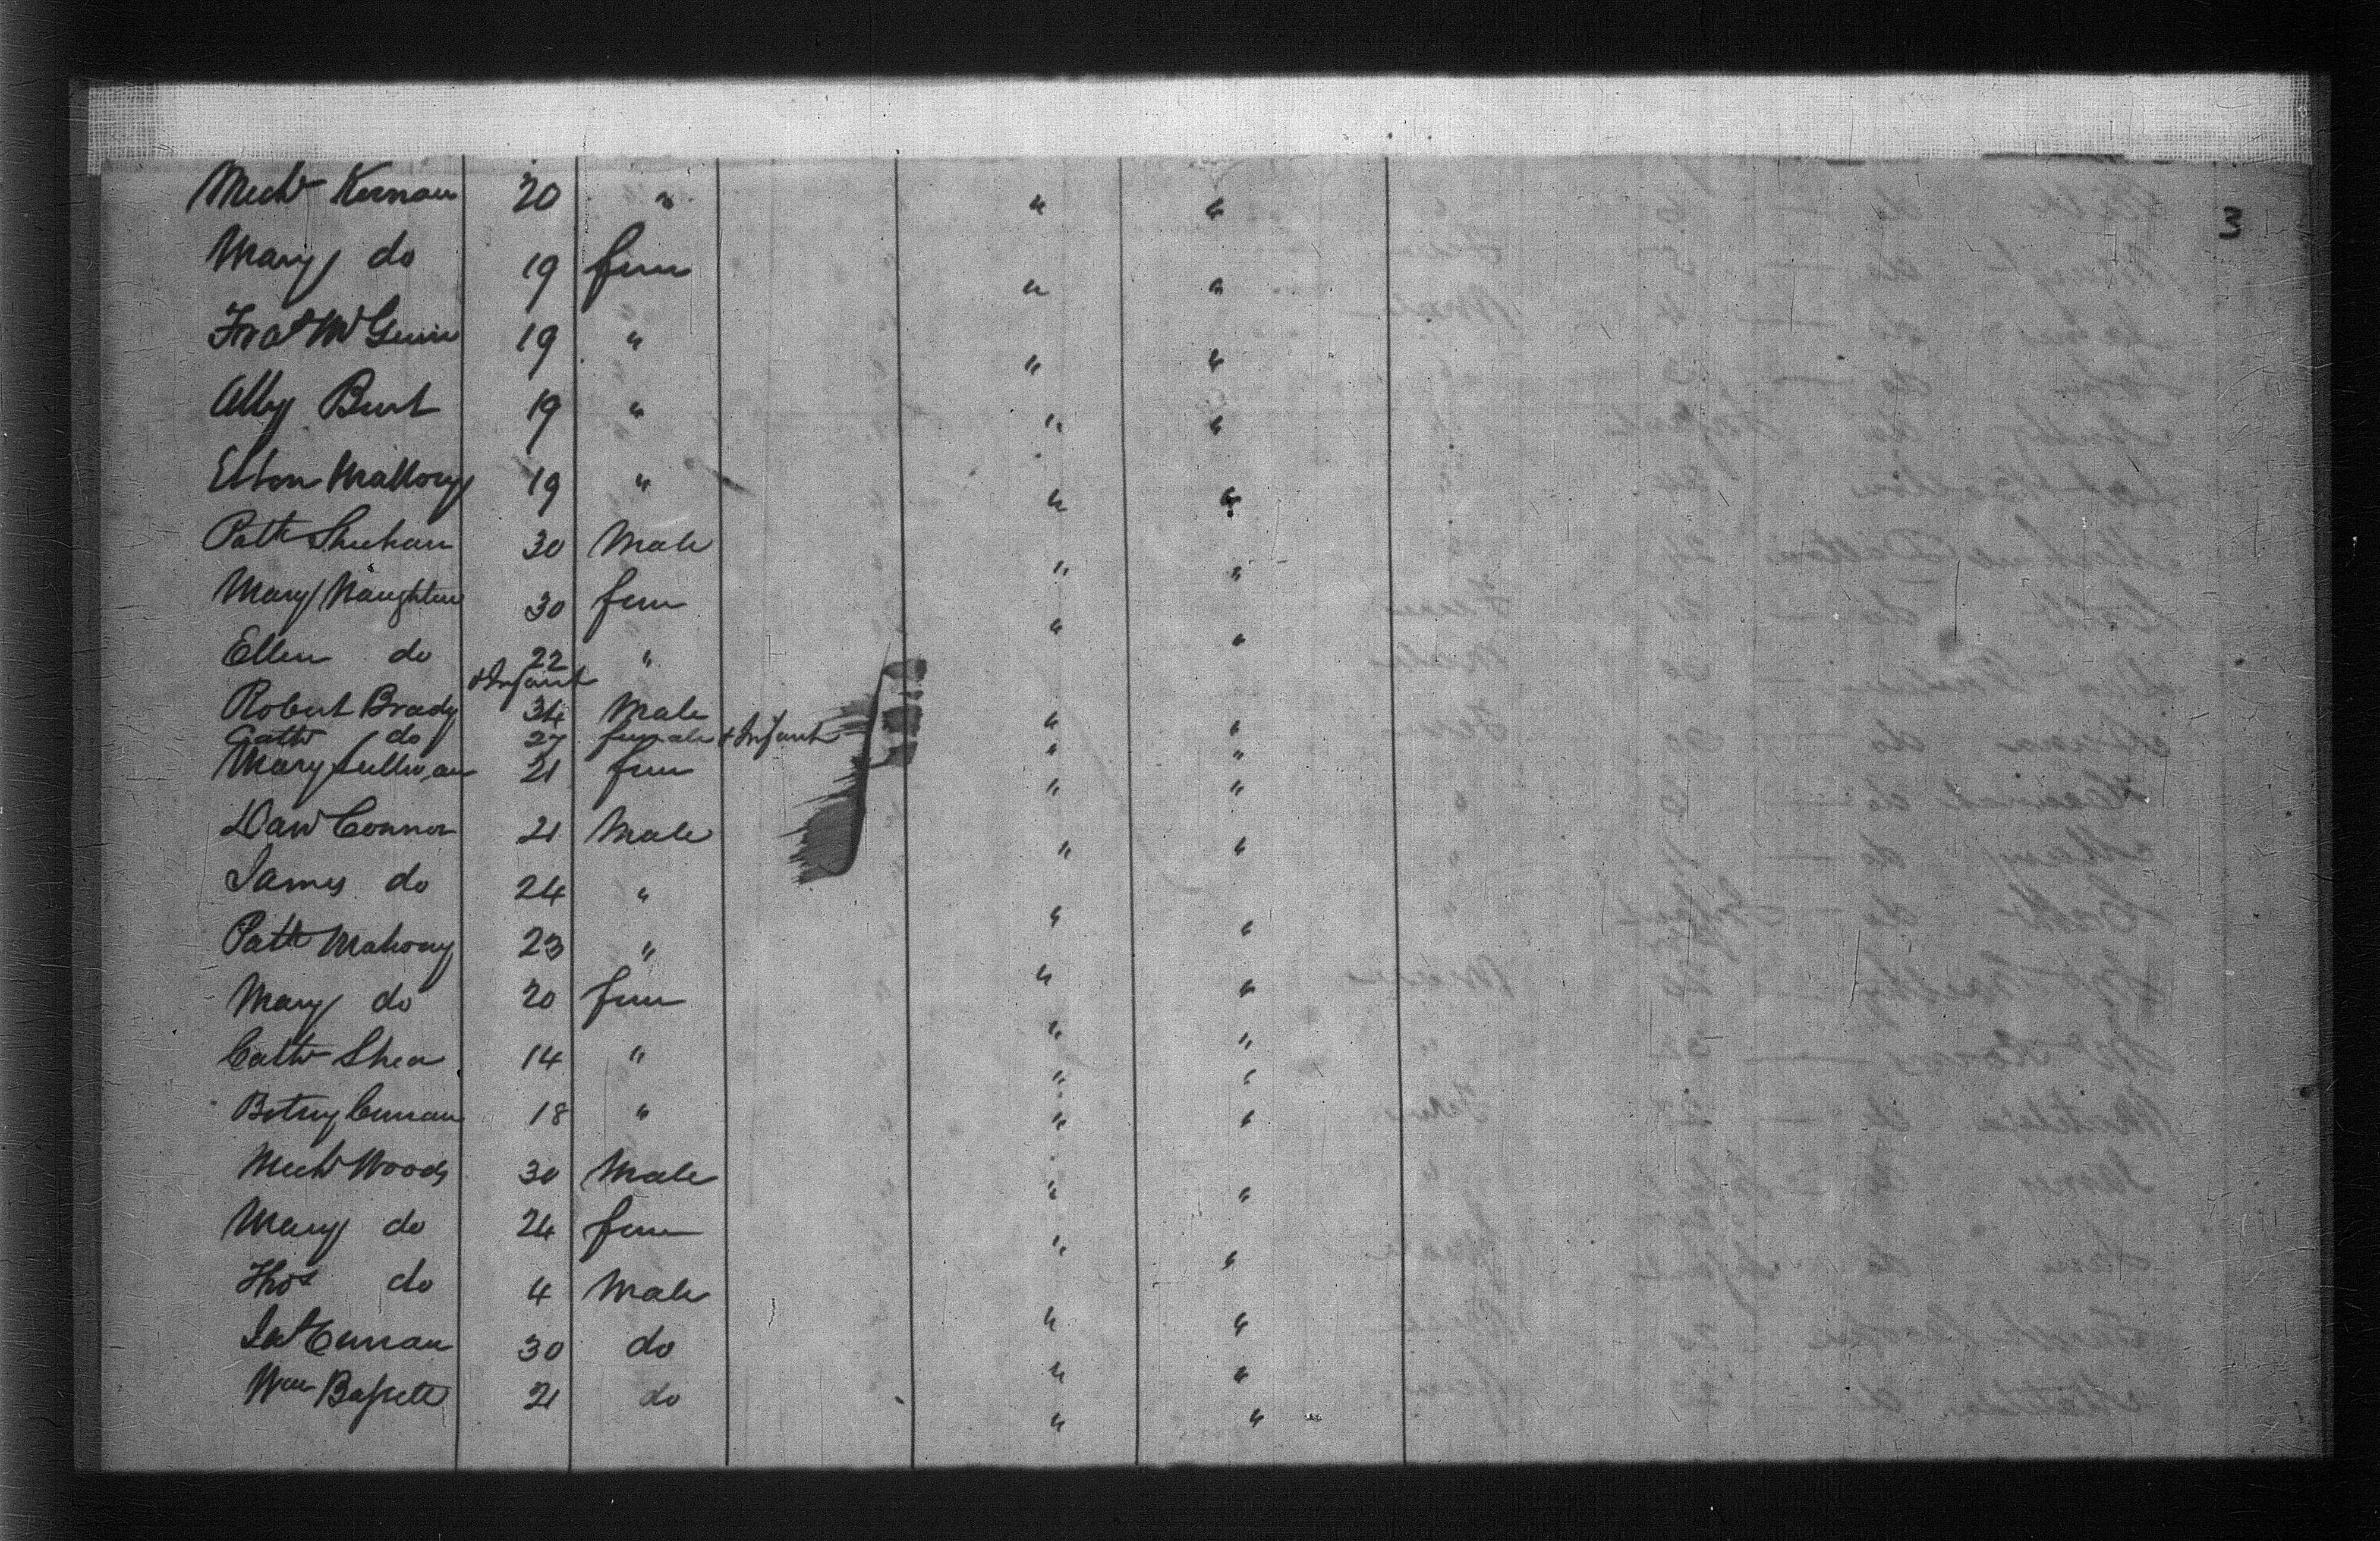 Michl Kernan 20 " " "
3
Mary do 19 fem " "
Fras McGuire 19 " " "
Ally Burt 19 " " "
Mallory 19 " " "
Patk Sheehan 30 Male " "
Mary Naughten 30 fem " "
Ellen do 22 "
& Infant
Robert Brady 34 Male " "
Cath do 27 female & Infant " "
Mary Sullivan 21 fem " "
Danl Connor 21 Male " "
James do 24 " " "
Patk Mahony 23 " " "
Mary do 20 fem " "
Cath Shea 14 " " "
Betsey Curran 18 " " "
Michl Woods 30 Male " "
Mary do 24 fem " "
Thos do 4 Male " "
Jas Curran 30 do " "
Wm Bassett 21 do " "